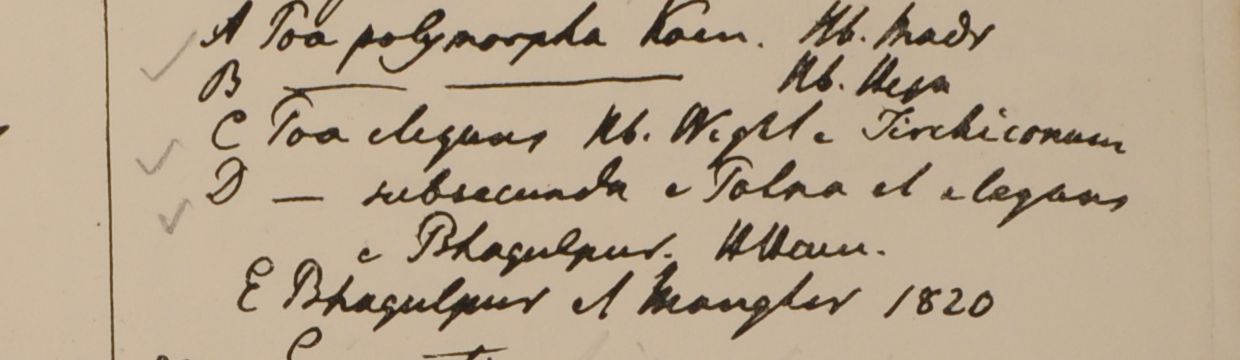 A Poa polymorpha Koen. Hb. Madr
B — — Hb. Heyn
C Poa elegans Hb. Wight e Tirchiconum
D — subsecunda e Patna et elegans
e Bhagulpur. HHam.
E Bhagulpur et Mongher 1820